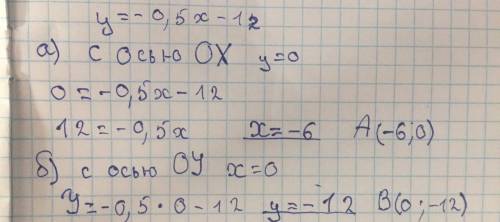 y = - 0,5x - 12
а) с осью OX y=0
0 = -0,5x - 12
12 = -0,5x x = -6 A(-6;0)
б) с осью OY x=0
y = -0,5 · 0 - 12 y = -12 B(0; -12)